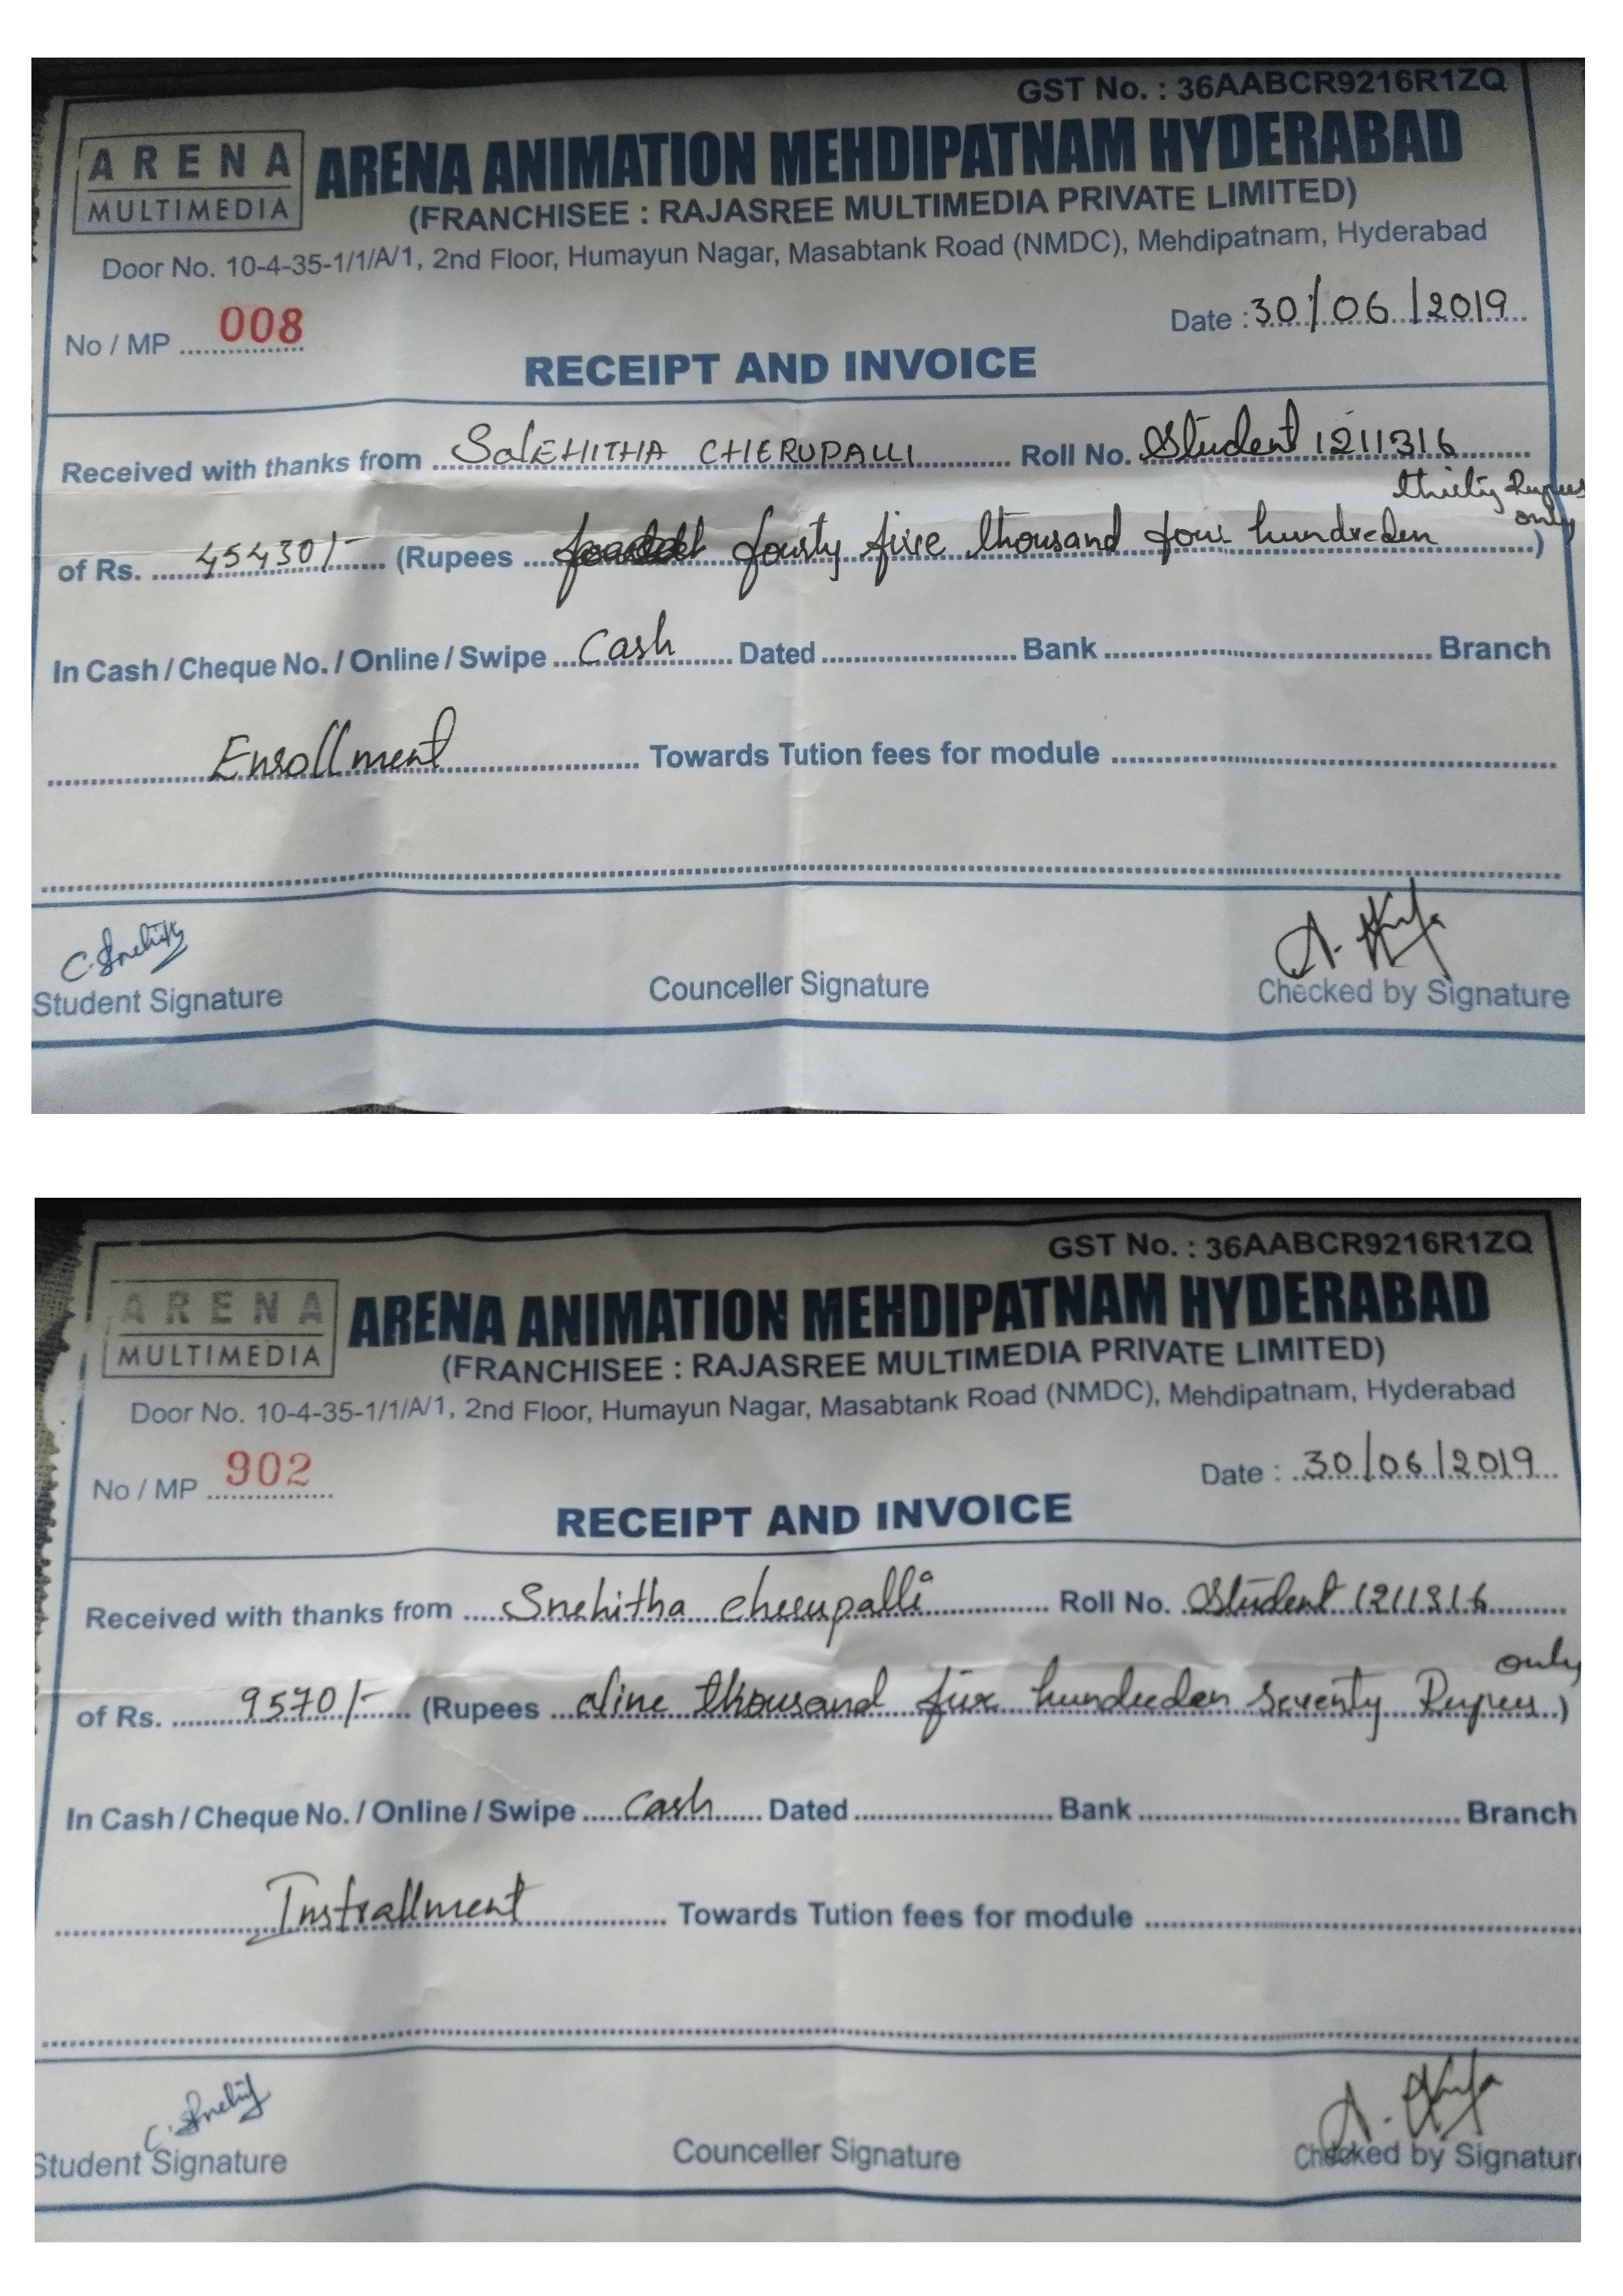 GST No. : 36AABCR9216R1ZQ
ARENA
MULTIMEDIA
ARENA ANIMATION MEHDIPATNAM HYDERABAD
(FRANCHISEE : RAJASREE MULTIMEDIA PRIVATE LIMITED)
Door No. 10-4-35-1/1/A/1, 2nd Floor, Humayun Nagar, Masabtank Road (NMDC), Mehdipatnam, Hyderabad
No / MP 008 Date : 30/06/2019
RECEIPT AND INVOICE
Received with thanks from CHERUPALLI Roll No. Student 1211316
thirty Rupees
only
of Rs. 45430/- (Rupees fourty five thousand four hundreden)
In Cash / Cheque No. / Online / Swipe Cash Dated Bank Branch
Enrollment Towards Tution fees for module
C. Snehith
Student Signature Counceller Signature Checked by Signature
GST No. : 36AABCR9216R1ZQ
ARENA
MULTIMEDIA
ARENA ANIMATION MEHDIPATNAM HYDERABAD
(FRANCHISEE : RAJASREE MULTIMEDIA PRIVATE LIMITED)
Door No. 10-4-35-1/1/A/1, 2nd Floor, Humayun Nagar, Masabtank Road (NMDC), Mehdipatnam, Hyderabad
No / MP 902 Date : 30/06/2019
RECEIPT AND INVOICE
Received with thanks from Snehitha cherupalli Roll No. Student 1211316
only
of Rs. 9570/- (Rupees Nine thousand five hundreden seventy Rupees)
In Cash / Cheque No. / Online / Swipe Cash Dated Bank Branch
Instrallment Towards Tution fees for module
Student Signature Counceller Signature Checked by Signature